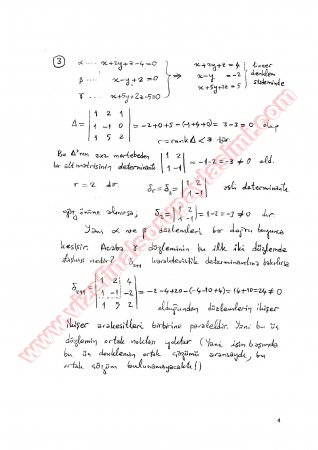 3 α ..... x+2y+z-4=0
β ..... x-y+2=0
γ ..... x+5y+2z-5=0
⇒ x+2y+z=4
x-y=-2
x+5y+2z=5
lineer denklem sisteminde
Δ = | 1 2 1 | | 1 -1 0 | | 1 5 2 | = -2+0+5-(-1+4+0) = 3-3=0 olup
r=rank Δ<3 tür.
Bu Δ'nın 2x2 mertebeden
bir alt matrisinin determinantı | 1 2 | | 1 -1 | = -1-2=-3≠0 old..
r=2 dir. δr=δ2= | 1 2 | | 1 -1 | asli determinantı
göz önüne alınırsa, δ2= | 1 2 | | 1 -1 | = -1-2=-3≠0 dır.
Yani α ve β düzlemleri bir doğru boyunca
kesişir. Acaba γ düzleminin bu ilk iki düzlemle
durumu nedir? δr+1 karakteristik determinantına bakılırsa
δr+1= | 1 2 4 | | 1 -1 -2 | | 1 5 | = -2-4+20-(-4-10+4)=14+10=24≠0
olduğundan düzlemlerin ikişer
ikişer arakesitleri birbirine paraleldir. Yani bu üç
düzlemin ortak noktası yoktur (Yani işin başında
bu üç denklemin ortak çözümü aransaydı, bu
ortak çözüm bulunamayacaktı!)
4